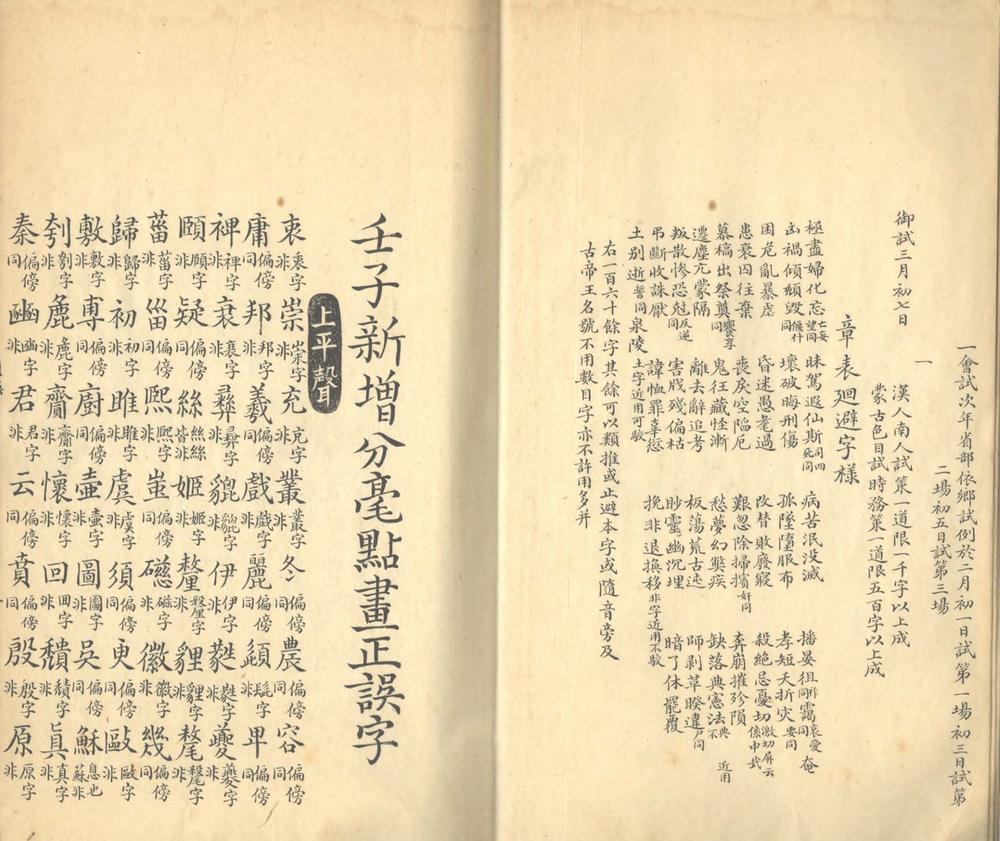 一會試次年省部依鄉試例於二月初一日試第一場初三日試第
二場初五日試第三場
一
御試三月初七日
漢人南人試策一道限一千字以上成
蒙古色目試時務策一道限五百字以上成
章表廻避字樣
極盡婦化忘亡妄望同 昧駕遐仙斯同四死同 病苦泯没滅 播晏徂同靄哀愛同奄
凶禍傾頽毀偃仆同 壞破晦刑傷 孤墜墮服布 孝短夭折灾要同
困危亂暴虐 昏迷愚耄過 改替敗廢寢 殺絕忌憂切激切屏云係申
患衰囚往棄 喪戾空陷厄 艱忽除掃擯奸同 奔崩摧殄隕
慕槁出祭奠饗尊同 鬼狂藏怪漸 愁夢幻弊疾 缺落典憲法典不近用
遷塵亢蒙隔 離去辭追考 板蕩荒古迍 師剥草睽違尸同
叛散慘恐尅反逆同 害戕殘偏枯 眇靈幽沉埋 暗了休罷覆
弔斷收誅厭 諱恤罪辜愆 挽非退換移非字近用不駮
土别逝誓同泉陵土字近用可駮
右一百六十餘字其餘可以類推或止避本字或隨音旁及
古帝王名號不用數目字亦不許用多并
壬子新增分毫點畫正誤字
上平聲
衷衷字非 崇崇字非 充充字非 叢叢字非 冬偏傍同 農偏傍同 容偏傍同
庸偏傍同 邦邦字非 羲偏傍同 戲戲字非 麗偏傍同 頿髭字非 卑偏傍同
裨裨字非 衰衰字非 彝彝字非 貔貔字非 伊伊字非 蕤蕤字非 夔夔字非
頤頤字非 疑偏傍同 絲絲絲皆非 姬姬字非 釐釐字非 貍貍字非 氂氂字非
菑菑字非 甾偏傍同 熙熙字非 蚩偏傍同 磁磁字非 徽徽字非 幾偏傍同
歸歸字非 初初字非 雎雎字非 虞虞字非 須偏傍同 臾偏傍同 毆毆字非
敷敷字非 專偏傍同 廚偏傍同 壺壺字非 圖圖字非 吳偏傍同 穌息也蘇非
刳刳字非 麁麁字非 齎齎字非 懷懷字非 回回字非 穨積字非 眞真字非
秦偏傍同 豳豳字非 君君字非 云偏傍同 賁偏傍同 殷殷字非 原原字非